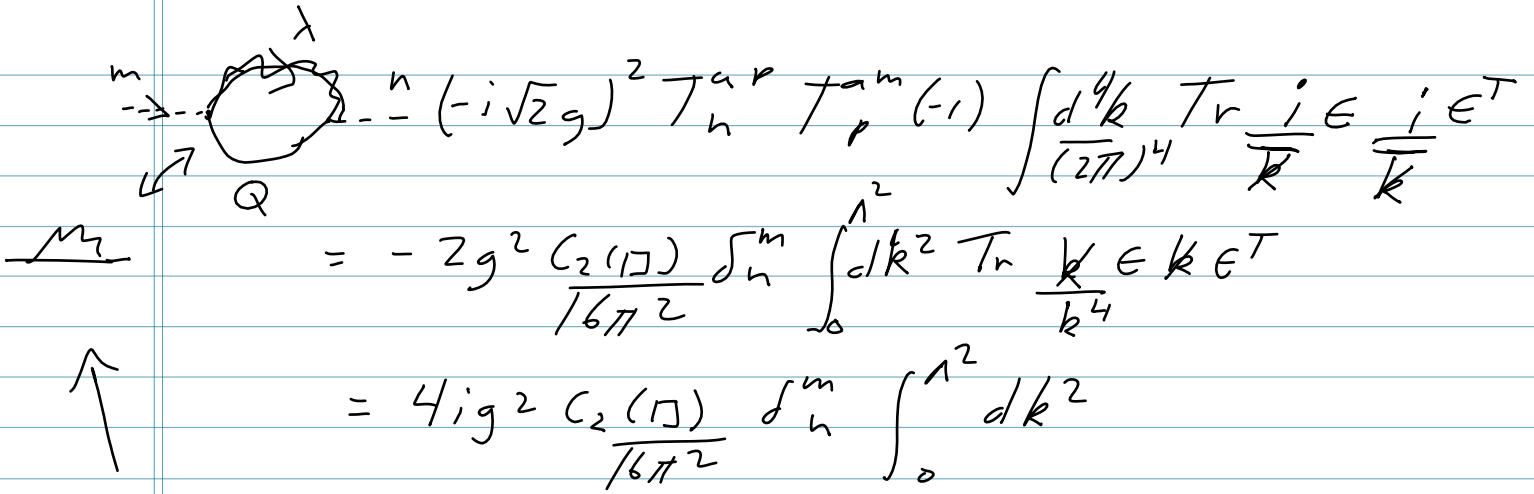 λ
m n (-i√2g)² Tₙᵃᵖ Tₚᵃᵐ (-1) ∫ d⁴k/(2π)⁴ Tr i/k̸ ϵ i/k̸ ϵᵀ
Q
= - 2g² C₂(□)/16π² δₙᵐ ∫₀^Λ² dk² Tr k̸/k⁴ ϵ k̸ ϵᵀ
= 4ig² C₂(□)/16π² δₙᵐ ∫₀^Λ² dk²